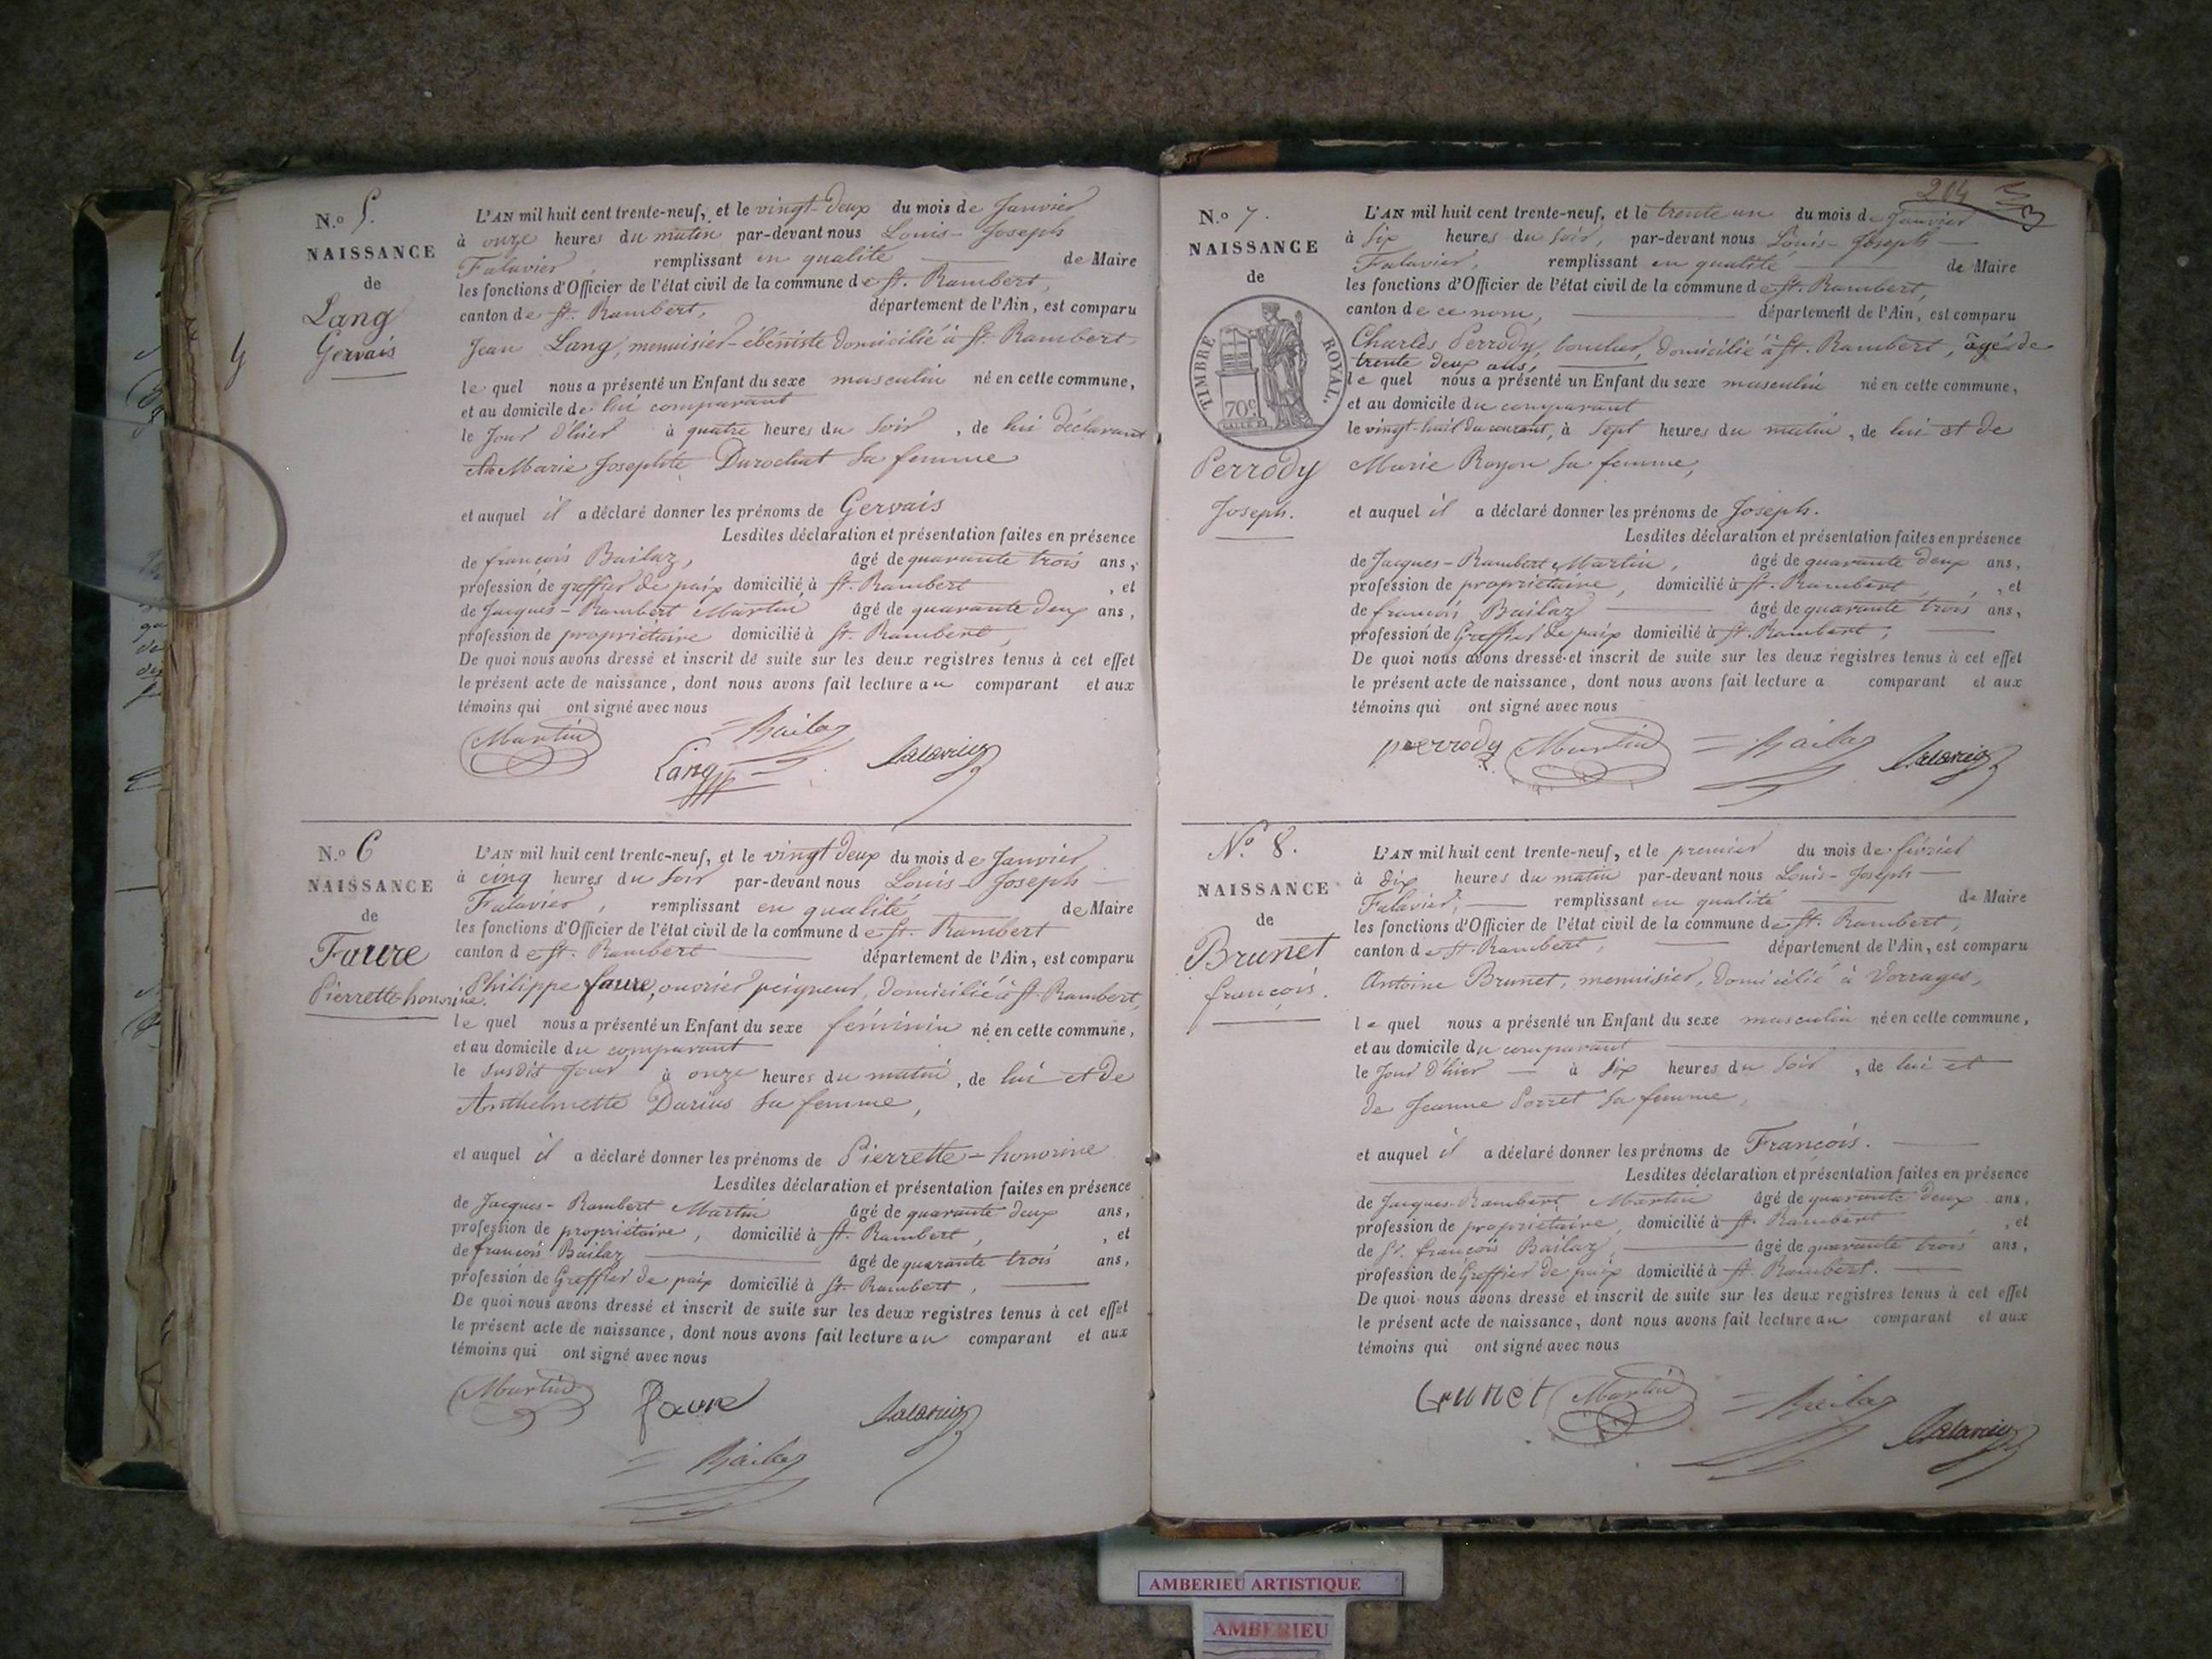 N.o 5.
NAISSANCE
de
Lang
Gervais
L'AN mil huit cent trente-neuf, et le vingt-deux du mois de Janvier
à onze heures du matin par-devant nous Louis-Joseph
Falavier, remplissant en qualité de Maire
les fonctions d'Officier de l'état civil de la commune de St. Rambert,
canton de St. Rambert, département de l'Ain, est comparu
Jean Lang, menuisier-ébéniste domicilié à St. Rambert
le quel nous a présenté un Enfant du sexe masculin né en cette commune,
et au domicile de lui comparant
le Jour d'hier à quatre heures du soir, de lui déclarant
Marie Josephte Durochat sa femme
et auquel il a déclaré donner les prénoms de Gervais
Lesdites déclaration et présentation faites en présence
de françois Bailaz, âgé de quarante trois ans,
profession de greffier de paix domicilié à St. Rambert, et
de Jacques-Rambert Martin âgé de quarante deux ans,
profession de propriétaire domicilié à St. Rambert,
De quoi nous avons dressé et inscrit de suite sur les deux registres tenus à cet effet
le présent acte de naissance, dont nous avons fait lecture au comparant et aux
témoins qui ont signé avec nous
Martin Bailaz
Lang Falavier
N.o 6
NAISSANCE
de
Faure
Pierrette-honorine.
L'AN mil huit cent trente-neuf, et le vingt deux du mois de Janvier
à cinq heures du soir par-devant nous Louis-Joseph
Falavier, remplissant en qualité de Maire
les fonctions d'Officier de l'état civil de la commune de St. Rambert
canton de St. Rambert département de l'Ain, est comparu
Philippe faure, ouvrier peigneur, domicilié à St. Rambert,
le quel nous a présenté un Enfant du sexe féminin né en cette commune,
et au domicile du comparant
le susdit jour à onze heures du matin, de lui et de
Anthelmette Darius sa femme,
et auquel il a déclaré donner les prénoms de Pierrette-honorine
Lesdites déclaration et présentation faites en présence
de Jacques-Rambert Martin âgé de quarante deux ans,
profession de propriétaire, domicilié à St. Rambert, et
de françois Bailaz âgé de quarante trois ans,
profession de Greffier de paix domicilié à St. Rambert,
De quoi nous avons dressé et inscrit de suite sur les deux registres tenus à cet effet
le présent acte de naissance, dont nous avons fait lecture au comparant et aux
témoins qui ont signé avec nous
Martin faure Falavier
Bailaz
204
N.o 7.
NAISSANCE
de
TIMBRE ROYAL.
70c
Perrody
Joseph.
L'AN mil huit cent trente-neuf, et le trente un du mois de Janvier
à six heures du soir, par-devant nous Louis-Joseph
Falavier, remplissant en qualité de Maire
les fonctions d'Officier de l'état civil de la commune de St. Rambert,
canton de ce nom, département de l'Ain, est comparu
Charles Perrody, boucher, domicilié à St. Rambert, âgé de
trente deux ans,
le quel nous a présenté un Enfant du sexe masculin né en cette commune,
et au domicile du comparant
le vingt-huit du courant, à sept heures du matin, de lui et de
Marie Royon sa femme,
et auquel il a déclaré donner les prénoms de Joseph.
Lesdites déclaration et présentation faites en présence
de Jacques-Rambert Martin, âgé de quarante deux ans,
profession de propriétaire, domicilié à St. Rambert, et
de françois Bailaz âgé de quarante trois ans,
profession de Greffier de paix domicilié à St. Rambert,
De quoi nous avons dressé et inscrit de suite sur les deux registres tenus à cet effet
le présent acte de naissance, dont nous avons fait lecture a comparant et aux
témoins qui ont signé avec nous
perrody Martin Bailaz Falavier
No. 8.
NAISSANCE
de
Brunet
françois.
L'AN mil huit cent trente-neuf, et le premier du mois de février
à dix heures du matin par-devant nous Louis-Joseph
Falavier, remplissant en qualité de Maire
les fonctions d'Officier de l'état civil de la commune de St. Rambert,
canton de St. Rambert, département de l'Ain, est comparu
Antoine Brunet, menuisier, domicilié à Vorrages,
le quel nous a présenté un Enfant du sexe masculin né en cette commune,
et au domicile du comparant
le Jour d'hier à six heures du soir, de lui et
de Jeanne Porret sa femme,
et auquel il a déclaré donner les prénoms de François.
Lesdites déclaration et présentation faites en présence
de Jacques-Rambert Martin âgé de quarante deux ans,
profession de propriétaire, domicilié à St. Rambert, et
de Sr. françois Bailaz, âgé de quarante trois ans,
profession de Greffier de paix domicilié à St. Rambert.
De quoi nous avons dressé et inscrit de suite sur les deux registres tenus à cet effet
le présent acte de naissance, dont nous avons fait lecture au comparant et aux
témoins qui ont signé avec nous
brunet Martin Bailaz Falavier
AMBERIEU ARTISTIQUE
AMBERIEU